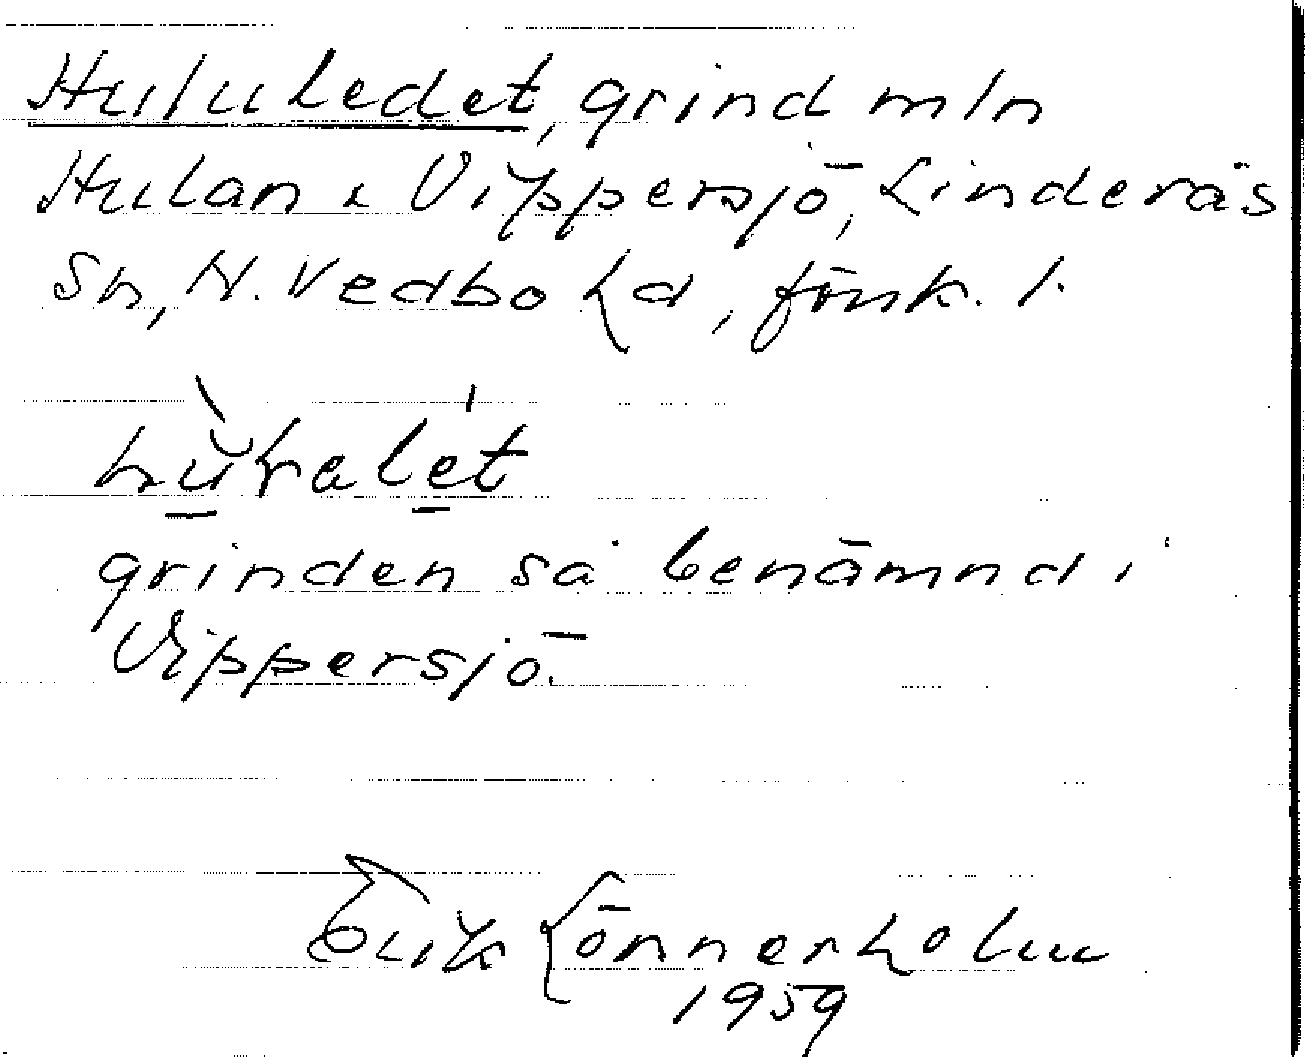 Hululedet, grind mln
Hulan o Vippersjö, Linderås
Sn, N. Vedbo hd, Jönk. l.
grinden så benämnd i
Vippersjö.
Erik Lönnerholm
1959